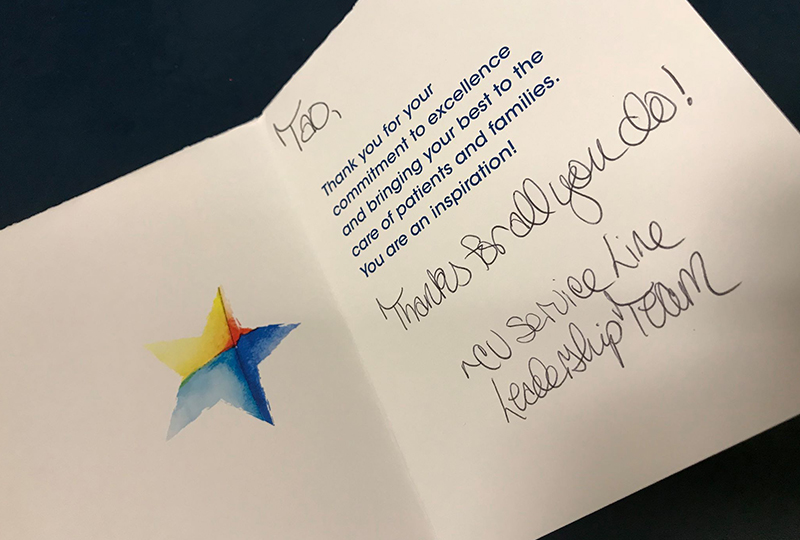 Tao,
Thank you for your
commitment to excellence
and bringing your best to the
care of patients and families.
You are an inspiration!
Thanks for all you do!
Service Line
Leadership Team